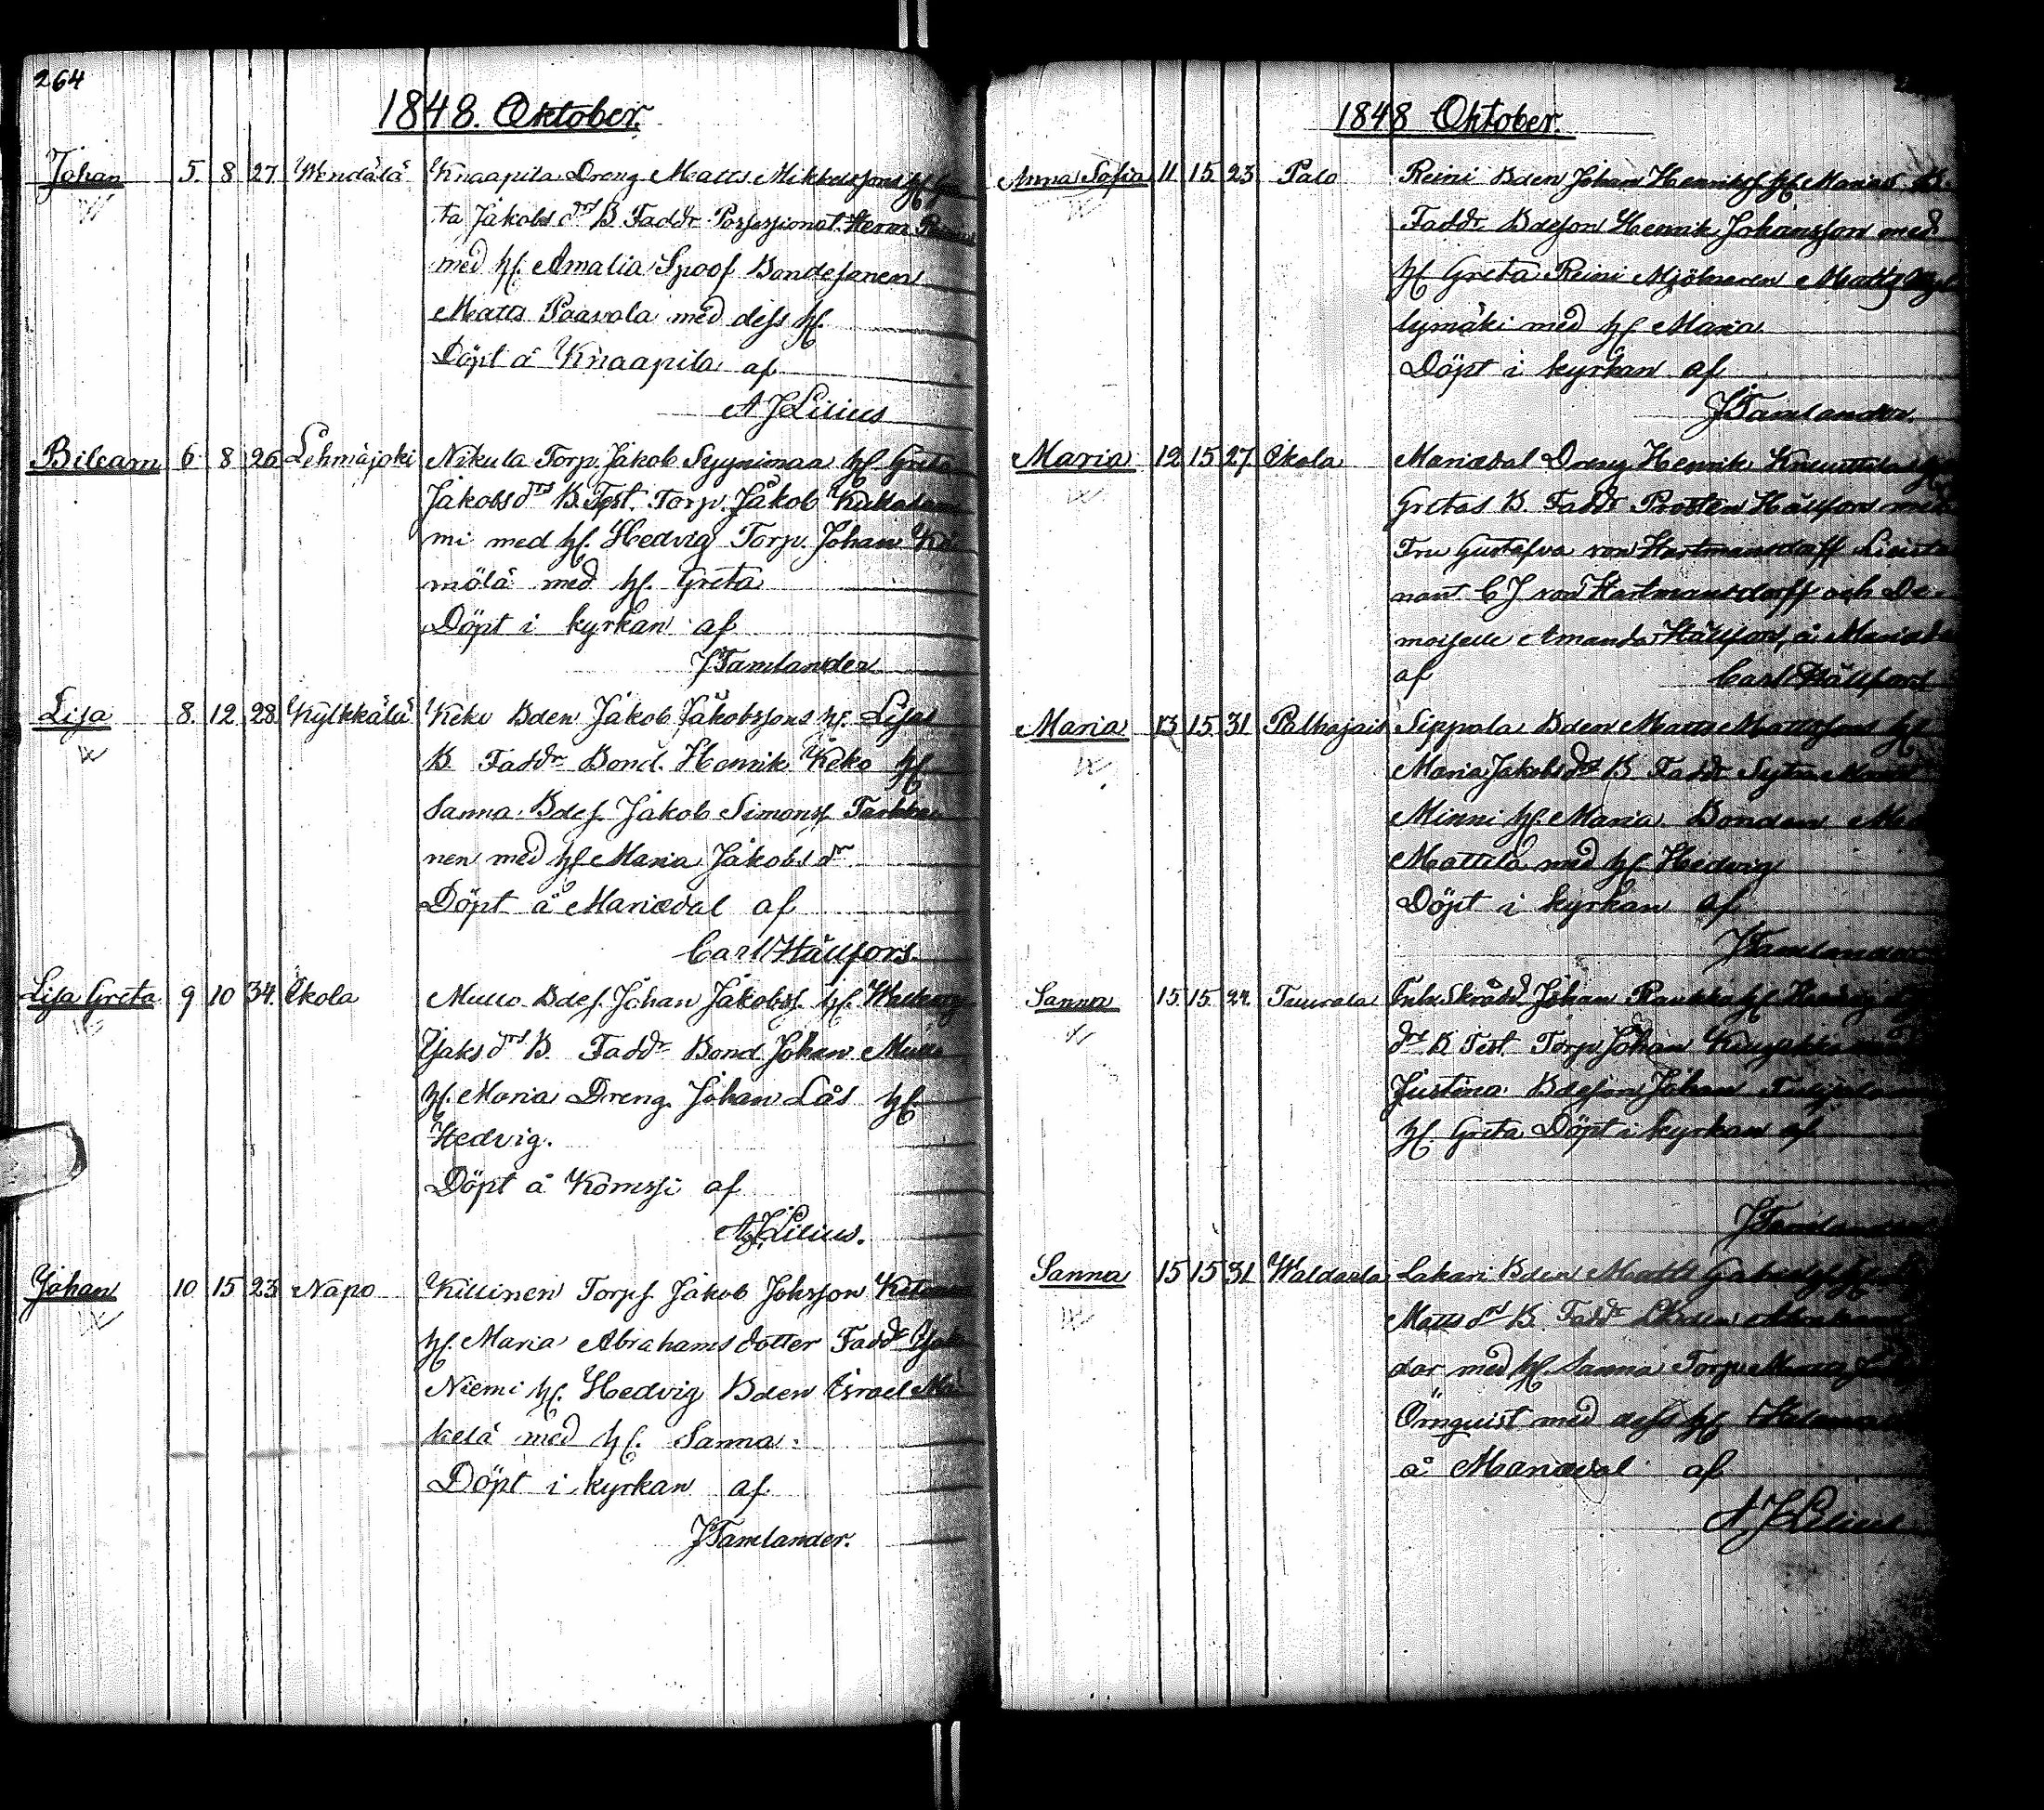 264
1848. Oktober.
Johan 5. 8 27 Wendälä Knaapila Dreng Matts Mikkelssons hf. Gre
ta Jakobs drs B. Faddr. Possessionat. Herm
med hf. Amalia Spoof Bondesonen
Matts Paavola med dess hf.
Döpt å Knaapila af
A J Lilius
Bileam 6 8 26 Lehmäjoki Nikula Torp. Jakob Syynimaa hf. Greta
Jakobs drs B. Test. Torp. Jåkob
mi med hf. Hedvig Torp. Johan Kö
mölä med hf. Greta
Döpt i kyrkan af
J Tamlander
Lisa 8. 12 28 Kylkkälä Keko Bden Jakob Jakobssons hf. Lisas
B. Faddr. Bond. Henrik Keko hf.
Sanna. Bdes. Jakob Simonss. Tarkka
nen med hf. Maria Jakobs dr
Döpt å Mariedal af
Carl Hällfors.
Lisa Greta 9 10 34. Ikola Mullo Bdes. Johan Jakobss. hf. Walborg
Isaks drs B. Faddr. Bond. Johan Mullo
hf. Maria Dreng. Johan Lås hf.
Hedvig.
Döpt å Komssi af
A J Lilius.
Johan 10 15 23 Napo Killinen Torps. Jakob Johsson
hf. Maria Abrahamsdotter Faddr.
Niemi hf. Hedvig Bden Israel Mä
kelä med hf. Sanna.
Döpt i kyrkan af
J Tamlander.
1848 Oktober.
Anna Sofia 11 15 23 Palo Reini Bden Johan Henrikss. hf. Marias B.
Faddr. Bdeson Henrik Johansson med
hf. Greta Reini Mjölnaren Matts
lymäki med hf. Maria
Döpt i kyrkan af
J Tamlander.
Maria 12 15 27 Ikola Mariedal Dreng Henrik Knuuttila hf.
Gretas B. Faddr. Prosten Hällfors med
Fru Gustafva von Hartmansdorff Lieute
nant C J von Hartmansdorff och De-
moiselle Amanda Hällfors, å Marieda
af Carl Hällfors
Maria 13 15 31 Palhojais Sippola Bden Matts Mattssons hf.
Maria Jakobs drs B. Faddr. Sytn.
Minni hf. Maria. Bonden
Mattila med hf. Hedvig
Döpt i kyrkan af
J Tamlander
Sanna 15 15 24 Tuurala Inh. Skrädd. Johan Raukko hf. Hedvig
drs B Test. Torp. Johan
Justina. Bdeson Johan
hf. Greta Döpt i kyrkan af
J Tamlander
Sanna 15 15 31 Waldaela Lakari Bden Matts Gabriels. hf.
Matts drs B. Faddr. Bden Abraham
dar med hf. Sanna Torp.
Örnquist med dess hf. Helena
å Mariedal af
A J Lilius